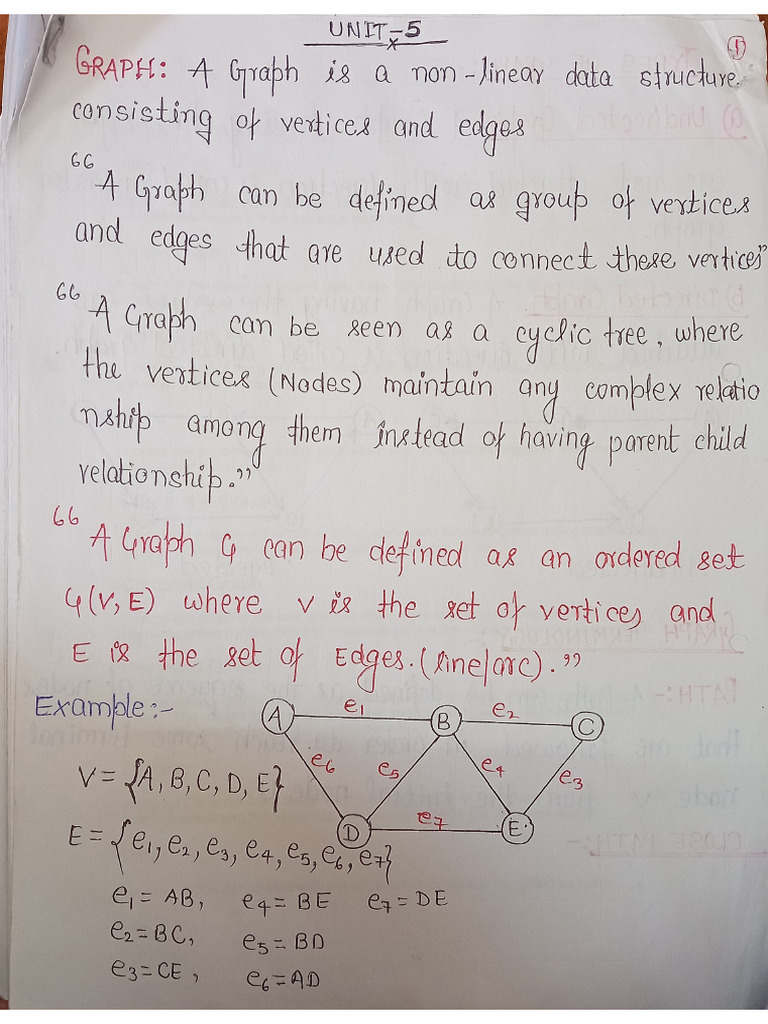 UNIT-5
①
GRAPH: A Graph is a non-linear data structure.
consisting of vertices and edges
“A Graph can be defined as group of vertices
and edges that are used to connect these vertices”
“A Graph can be seen as a cyclic tree, where
the vertices (Nodes) maintain any complex relatio
nship among them instead of having parent child
relationship.”
“A Graph G can be defined as an ordered set
G(V, E) where V is the set of vertices and
E is the set of Edges.(line/arc).”
Example:-
A e1 B e2 C
e6 e5 e4 e3
D e7 E
V = {A, B, C, D, E}
E = {e1, e2, e3, e4, e5, e6, e7}
e1 = AB, e4 = BE e7 = DE
e2 = BC, e5 = BD
e3 = CE, e6 = AD